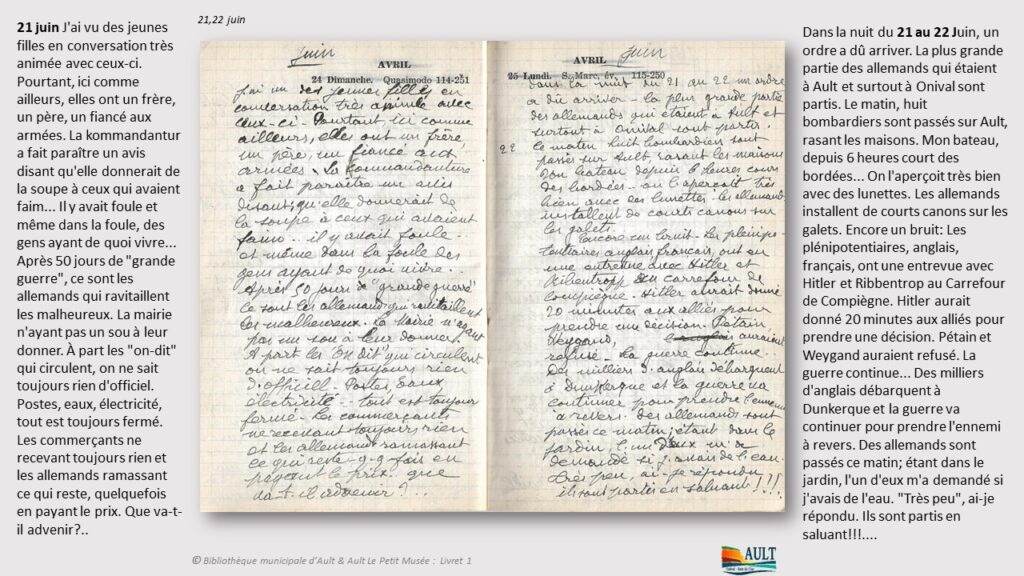 21,22 juin
21 juin J'ai vu des jeunes
filles en conversation très
animée avec ceux-ci.
Pourtant, ici comme
ailleurs, elles ont un frère,
un père, un fiancé aux
armées. La kommandantur
a fait paraître un avis
disant qu'elle donnerait de
la soupe à ceux qui avaient
faim... Il y avait foule et
même dans la foule, des
gens ayant de quoi vivre...
Après 50 jours de "grande
guerre", ce sont les
allemands qui ravitaillent
les malheureux. La mairie
n'ayant pas un sou à leur
donner. À part les "on-dit"
qui circulent, on ne sait
toujours rien d'officiel.
Postes, eaux, électricité,
tout est toujours fermé.
Les commerçants ne
recevant toujours rien et
les allemands ramassant
ce qui reste, quelquefois
en payant le prix. Que va-t-
il advenir?..
Juin
AVRIL
24 Dimanche. Quasimodo 114-251
J'ai vu des jeunes filles en
conversation très animée avec
ceux-ci. Pourtant ici comme
ailleurs, elles ont un frère
un père, un fiancé aux
armées. La commandanture
a fait paraître un avis
disant, qu'elle donnerait de
la soupe à ceux qui avaient
faim... il y avait foule
et même dans la foule des
gens ayant de quoi vivre..
Après 50 jours de "grande guerre"
ce sont les allemands qui ravitaillent
les malheureux. La Mairie n'ayant
pas un sou à leur donner.
A part les "On dit" qui circulent
on ne sait toujours rien
d'officiell. Postes, eaux
électricité - tout est toujours
fermé. Les commerçants
ne recevant toujours rien
et les allemands ramassant
ce qui reste q-q fois en
payant le prix. que
va-t-il advenir ?..
Juin
AVRIL
25 Lundi. S. Marc, év. 115-250
dans la nuit du 21 au 22 un ordre
a dû arriver - la plus grande partie
des allemands qui étaient à Ault et
surtout à Onival sont partis.
22 le matin huit bombardiers sont
passés sur Ault, rasant les maisons
Mon bateau depuis 6 heures cours
des bordées - on l'aperçoit très
bien avec des lunettes - les allemands
installent de courts canons sur
les galets.
Encore un bruit. Les plénipo-
tentiaires anglais français, ont eu
une entrevue avec Hitler et
Ribentropp au carrefour de
Compiègne. Hitler aurait donné
20 minutes aux alliés pour
prendre une décision. Pétain
Weygand, auraient
refusé - La guerre continue
Des milliers d'anglais débarquent
à Dunkerque et la guerre va
continuer pour prendre l'ennemi
à revers. Des allemands sont
passés ce matin; étant dans le
jardin l'un d'eux m'a
demandé si j'avais de l'eau -
très peu, ai-je répondu
ils sont partis en saluant !!!
Dans la nuit du 21 au 22 Juin, un
ordre a dû arriver. La plus grande
partie des allemands qui étaient
à Ault et surtout à Onival sont
partis. Le matin, huit
bombardiers sont passés sur Ault,
rasant les maisons. Mon bateau,
depuis 6 heures court des
bordées... On l'aperçoit très bien
avec des lunettes. Les allemands
installent de courts canons sur les
galets. Encore un bruit: Les
plénipotentiaires, anglais,
français, ont une entrevue avec
Hitler et Ribbentrop au Carrefour
de Compiègne. Hitler aurait
donné 20 minutes aux alliés pour
prendre une décision. Pétain et
Weygand auraient refusé. La
guerre continue... Des milliers
d'anglais débarquent à
Dunkerque et la guerre va
continuer pour prendre l'ennemi
à revers. Des allemands sont
passés ce matin; étant dans le
jardin, l'un d'eux m'a demandé si
j'avais de l'eau. "Très peu", ai-je
répondu. Ils sont partis en
saluant!!!....
© Bibliothèque municipale d'Ault & Ault Le Petit Musée : Livret 1
AULT